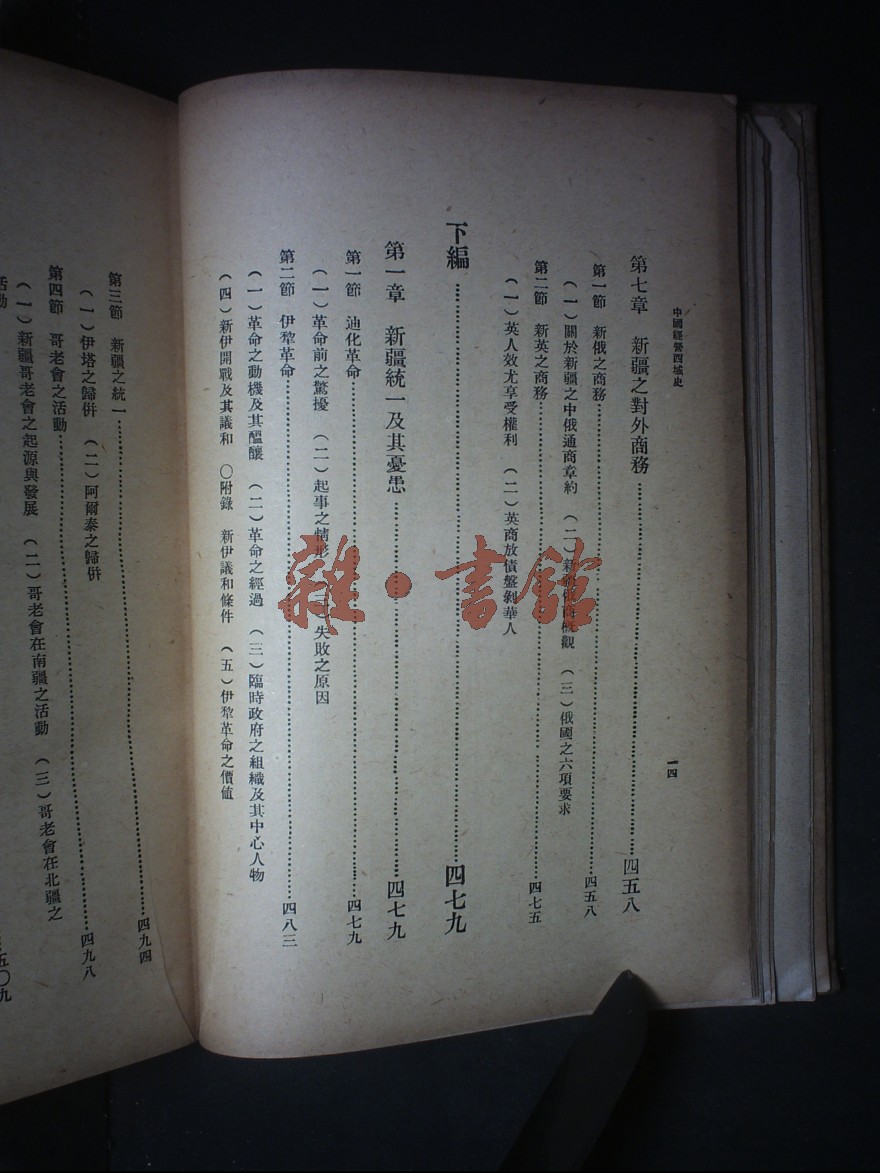 中國經營西域史
一四
第七章 新疆之對外商務……四五八
第一節 新俄之商務……四五八
（一）關於新疆之中俄通商章約 （二）新疆俄商概觀 （三）俄國之六項要求
第二節 新英之商務……四七五
（一）英人效尤享受權利 （二）英商放債盤剝華人
下編……四七九
第一章 新疆統一及其憂患……四七九
第一節 迪化革命……四七九
（一）革命前之驚擾 （二）起事之情形 （三）失敗之原因
第二節 伊犂革命……四八三
（一）革命之動機及其醞釀 （二）革命之經過 （三）臨時政府之組織及其中心人物
（四）新伊開戰及其議和 〇附錄 新伊議和條件 （五）伊犂革命之價値
第三節 新疆之統一……四九四
（一）伊塔之歸併 （二）阿爾泰之歸併
第四節 哥老會之活動……四九八
（一）新疆哥老會之起源與發展 （二）哥老會在南疆之活動 （三）哥老會在北疆之
活動
五〇九
雜·書館